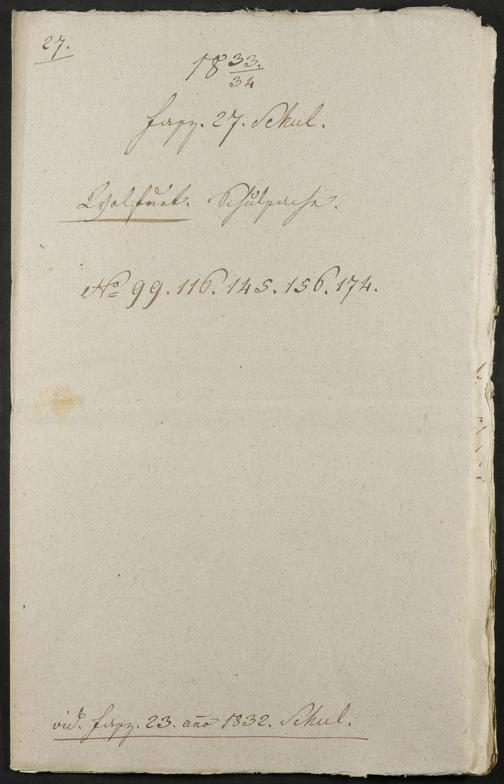 27.
18 33./34
Fasz. 27. Schul.
Wolfurt. Schulsache.
No 99. 116. 145. 156. 174.
vid. Fasz. 23. año 1832. Schul.